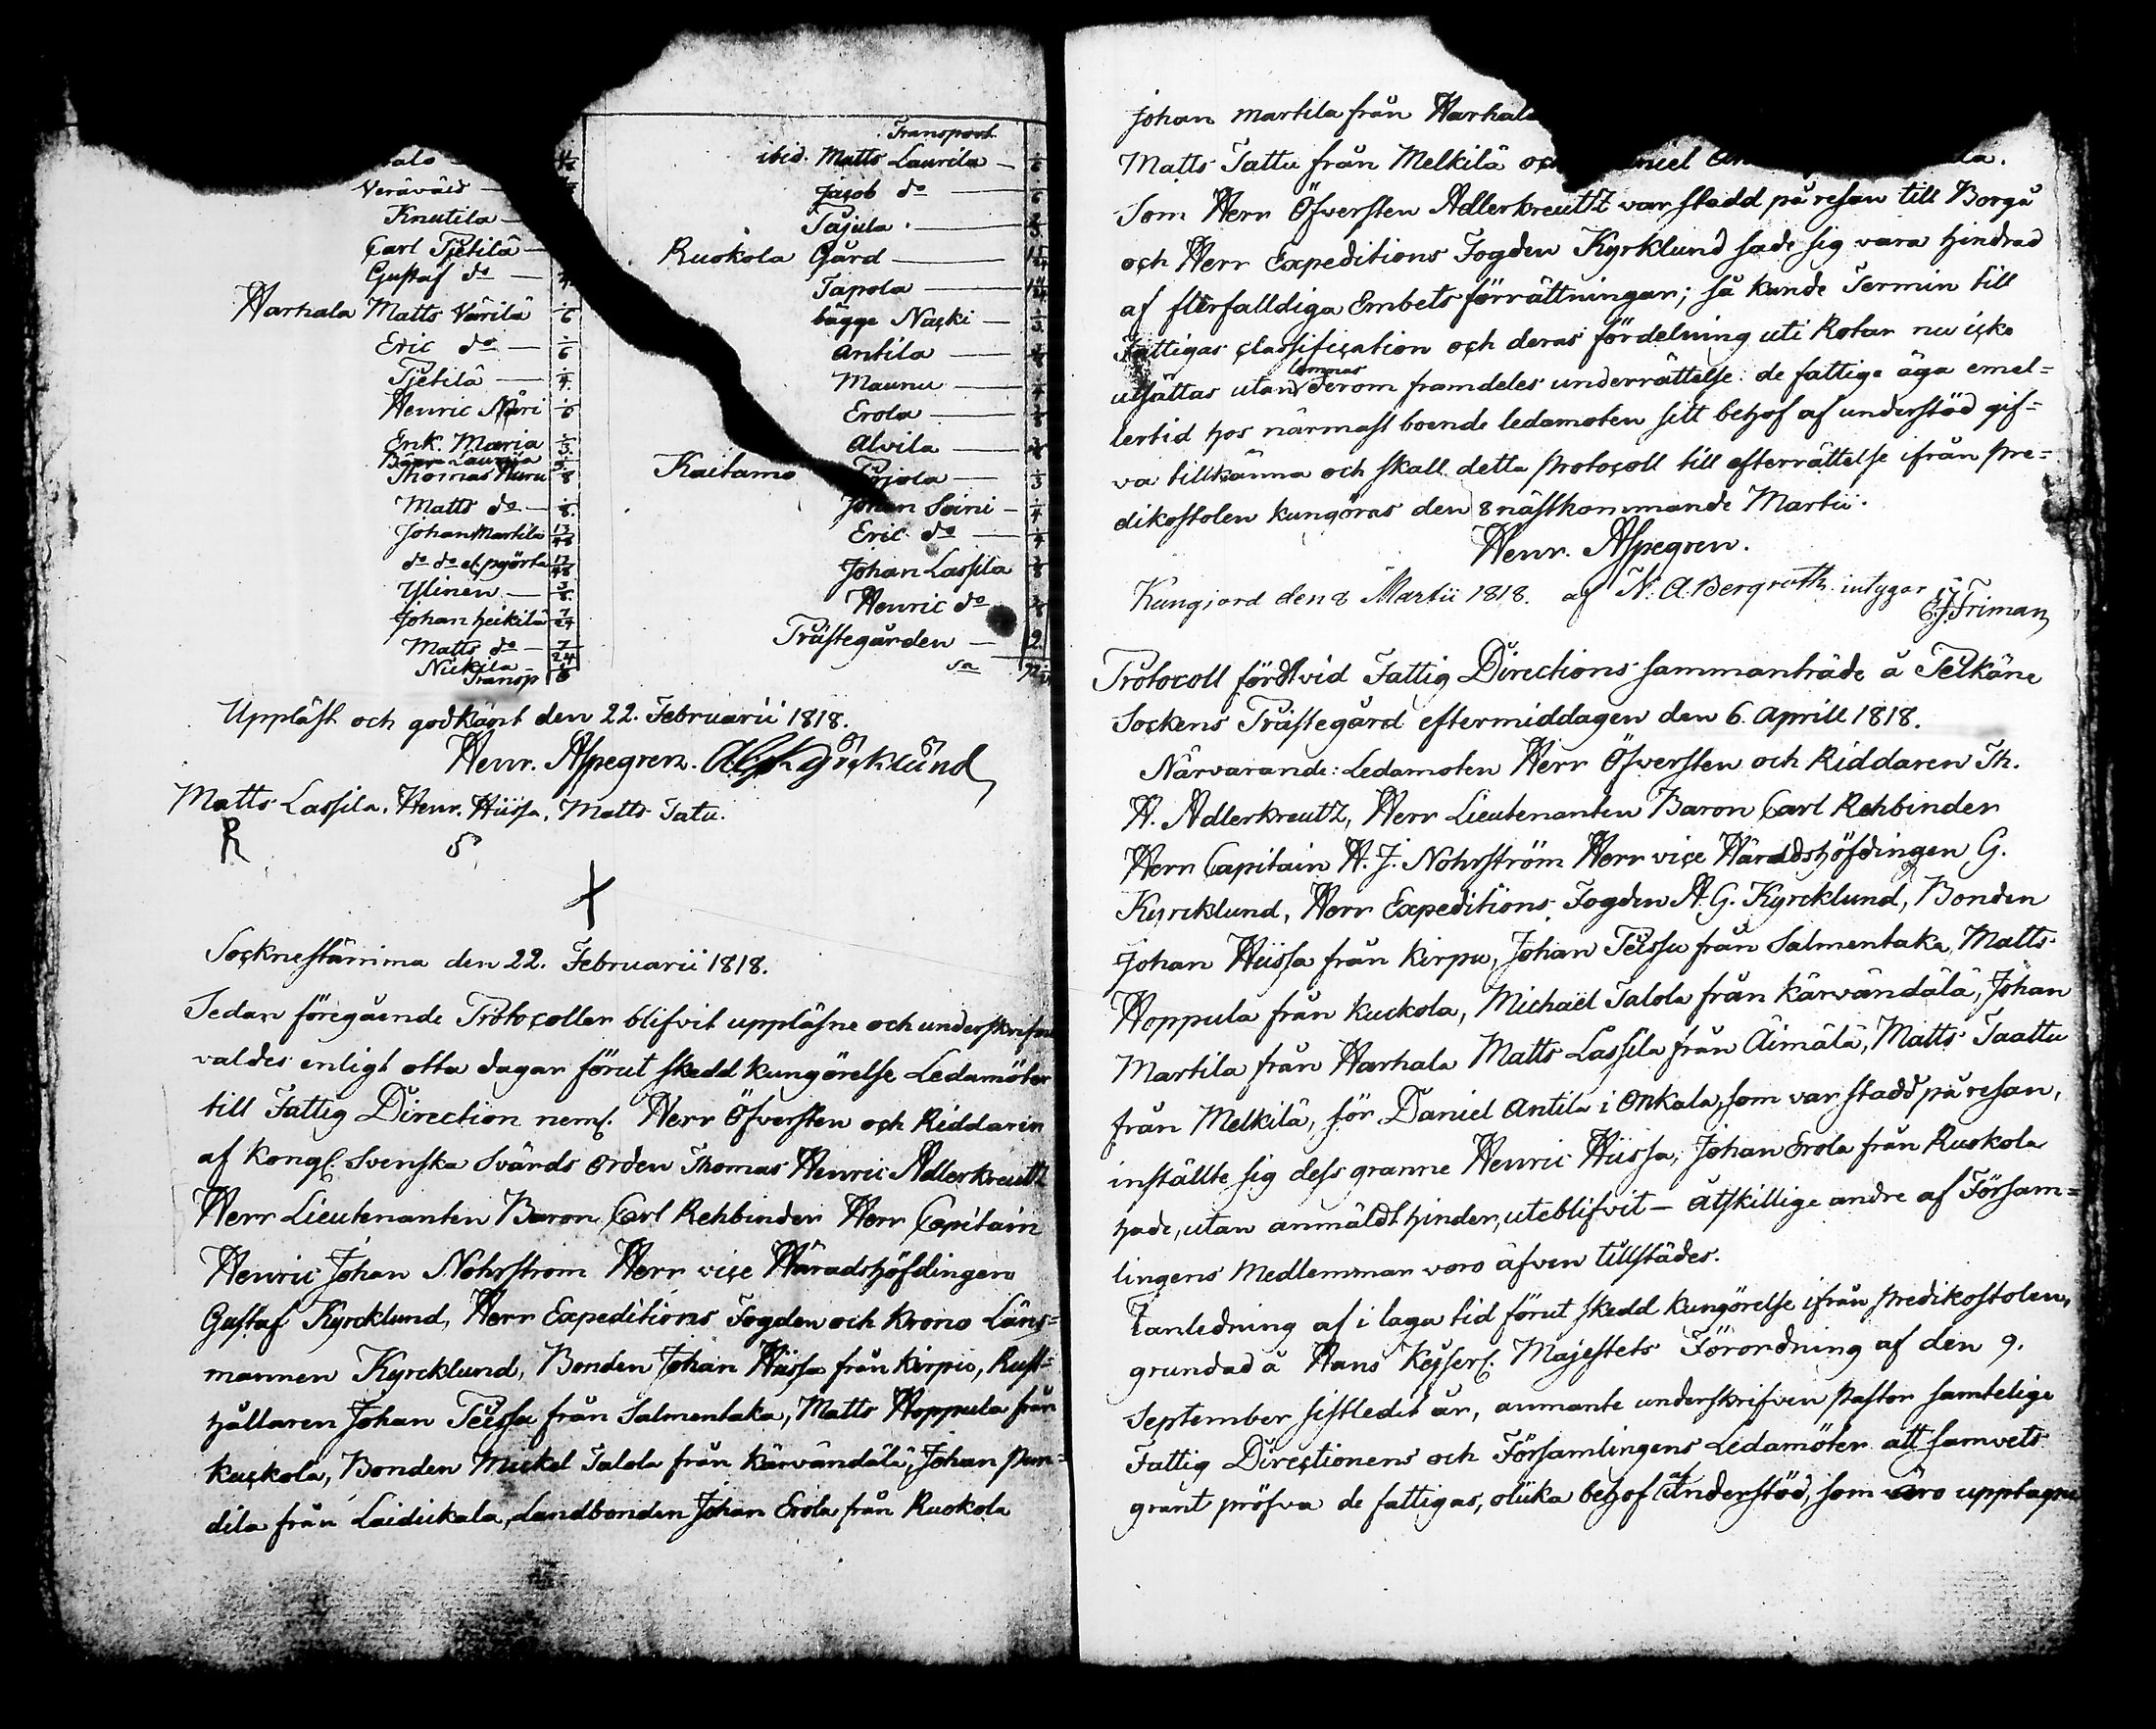 Veräväid —
Knutila —
Carl Tjetilä —
Gustaf do —
Harhala Matts Värilä 1/6
Eric do — 1/6
Tjetilä — 1/4
Henric Näri 1/6
Enk. Maria 1/3
Thomas Nuru 1/8
Matts do — 1/8
Johan Martila 13/48
do do el. pyörta 17/48
Ylinen — 3/8
Johan Heikilä 7/24
Matts do — 7/24
Nickila — 1/6
Transp
Transport
ibid. Matts Laurila — 1/6
Jacob do — 1/6
Pajula —
Ruokola Gård —
Tapola —
bägge Nacki — 1/3
Antila —
Maunu — 1/4
Erola —
Alvila —
Kaitamo Pojola — 1/3
Johan Soini — 1/4
Eric do — 1/4
Johan Lassila 3/8
Henric do 3/8
Prästegården — 2
Sa
Uppläst och godkänt den 22. Februarii 1818.
Henr. Aspegren.
Matts Lassila. Henr. Hiissa. Matts Tatu.
Socknestämma den 22. Februarii 1818.
Sedan föregående Protocoller blifvit uppläsne och underskrifne
valdes enligt otta dagar förut skedd kungörelse Ledamöter
till Fattig Direction neml. Herr Öfversten och Riddaren
af Kongl. Svenska Svärds Orden Thomas Henric Adlerkreutz
Herr Lieutenanten Baron Carl Rehbinder Herr Capitain
Henric Johan Nohrstrom Herr vice Häradshöfdingen
Gustaf Kyrcklund, Herr Expeditions Fogden och Krono Läns=
mannen Kyrcklund, Bonden Johan Hiissa från Kirpu, Rust=
hållaren Johan Peussu från Salmentaka, Matts Hoppula från
Kuckola, Bonden Mickel Talola från Kärvändälä, Johan Pun=
dila från Laidickala, Landbonden Johan Erola från Ruokola
Johan Martila från Harhala
Matts Tattu från Melkilä och
Som Herr Öfversten Adlerkreutz var stadd på resan till Borgå
och Herr Expeditions Fogden Kyrklund sade sig vara hindrad
af flerfalldiga Embetsförrättningar; så kunde Termin till
Fattigas classification och deras fördelning uti Rotar nu icke
utsättas utan lemnas derom framdeles underrättelse: de fattige äga emel=
lertid hos närmast boende ledamoten sitt behof af understöd gif=
va tillkänna och skall detta Protocoll till efterrättelse ifrån Pre=
dikostolen kungöras den 8 nästkommande Martii.
Henr. Aspegren.
Kungjord den 8 Martii 1818. af N. A. Bergroth intygar
E. J. Friman
Protocoll fördt vid Fattig Directions sammanträde å Pelkäne
Sockens Prästegård eftermiddagen den 6. Aprill 1818.
Närvarande: Ledamoten Herr Öfversten och Riddaren Th.
H. Adlerkreutz, Herr Lieutenanten Baron Carl Rehbinder
Herr Capitain H. J. Nohrström Herr vice Häradshöfdingen G.
Kyrcklund, Herr Expeditions Fogden A. G. Kyrcklund, Bonden
Johan Hiissa från Kirpu, Johan Peussu från Salmentaka, Matts
Hoppula från Kuckola, Michaël Talola från Kärvändälä, Johan
Martila från Harhala Matts Lassila från Äimälä, Matts Taattu
från Melkilä, för Daniel Antila i Onkala, som var stadd på resan,
inställte sig dess granne Henric Hiissa, Johan Erola från Ruokola
hade, utan anmäldt hinder, uteblifvit — Åtskillige andre af Försam=
lingens Medlemmar voro äfven tillstädes.
I anledning af i laga tid förut skedd kungörelse ifrån Predikostolen,
grundad å Hans Keyserl. Majestets Förordning af den 9.
September sistledit år, anmante underskrifven Pastor samtelige
Fattig Directionens och Församlingens Ledamöter att samvets
grant pröfva de fattigas, olika behof af understöd, som äro upptagne